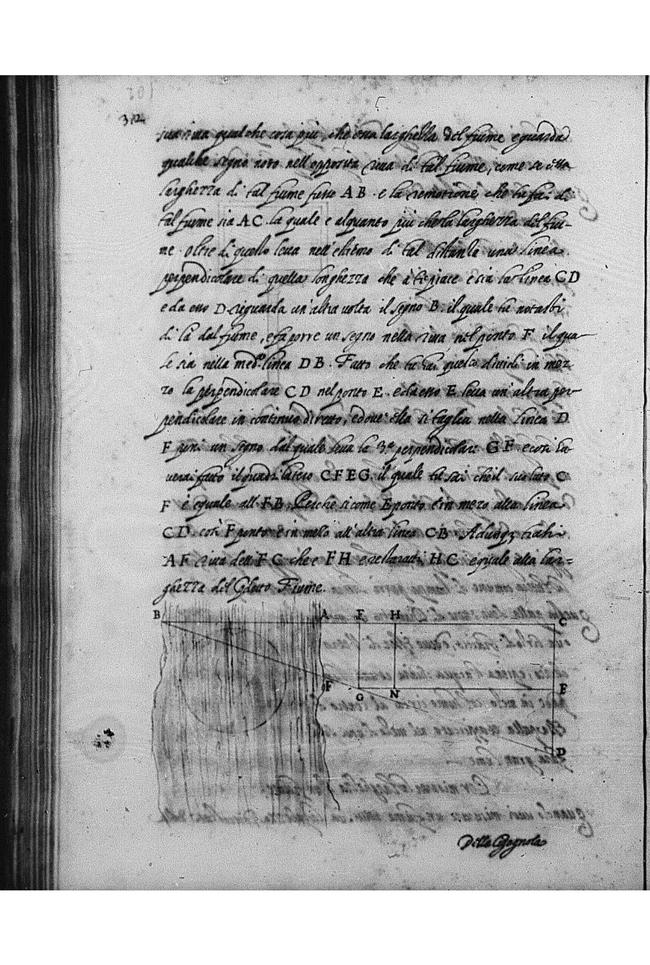 312
sua riua qualche cosa piu, che essa larghezza del fiume e guarda
qualche segno noto nell'opposita riua di tal fiume, come se essa
larghezza di tal fiume fusse A B. e la remotione, che tu fai di
tal fiume sia A C. la quale e alquanto piu che la larghezza del fiu-
me. oltre di quello leua nell'estremo di tal distantia una linea
perpendicolare di quella longhezza che a te piace e sia la linea C D
e da esso D. riguarda un'altra volta il segno B. il quale tu notasti
di là dal fiume, e fa porre un segno nella riua nel ponto F. il qua-
le sia nella med.ª linea D B. Fatto che tu hai questo diuidi in mez-
zo la perpendicolare C D nel ponto E. e da esso E leua un'altra per-
pendicolare in continuo diretto, e doue ella si taglia nella linea D
F poni un segno dal quale leua la 3.ª perpendicolare G F. e cosi ha-
uerai fatto il quadrilatero C F E G. il quale tu sai che il suo lato C
F è equale all' F B. Perche si come E ponto è in mezo alla linea
C D. cosi F ponto è in mezo all'altra linea C B. Adunq; trahi
A F. fuora dell' F C. che è F H e restarà di H C. equale alla lar=
ghezza del Fiume.
B A F H C
F G N E
D
Della Cicognola